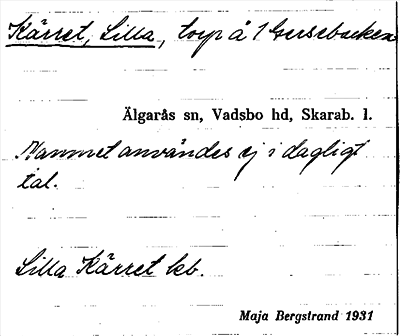 Kärret, Lilla, torp å 1 Gersebacken
Älgarås sn, Vadsbo hd, Skarab. l.
Namnet användes ej i dagligt
tal.
Lilla Kärret kb.
Maja Bergstrand 1931